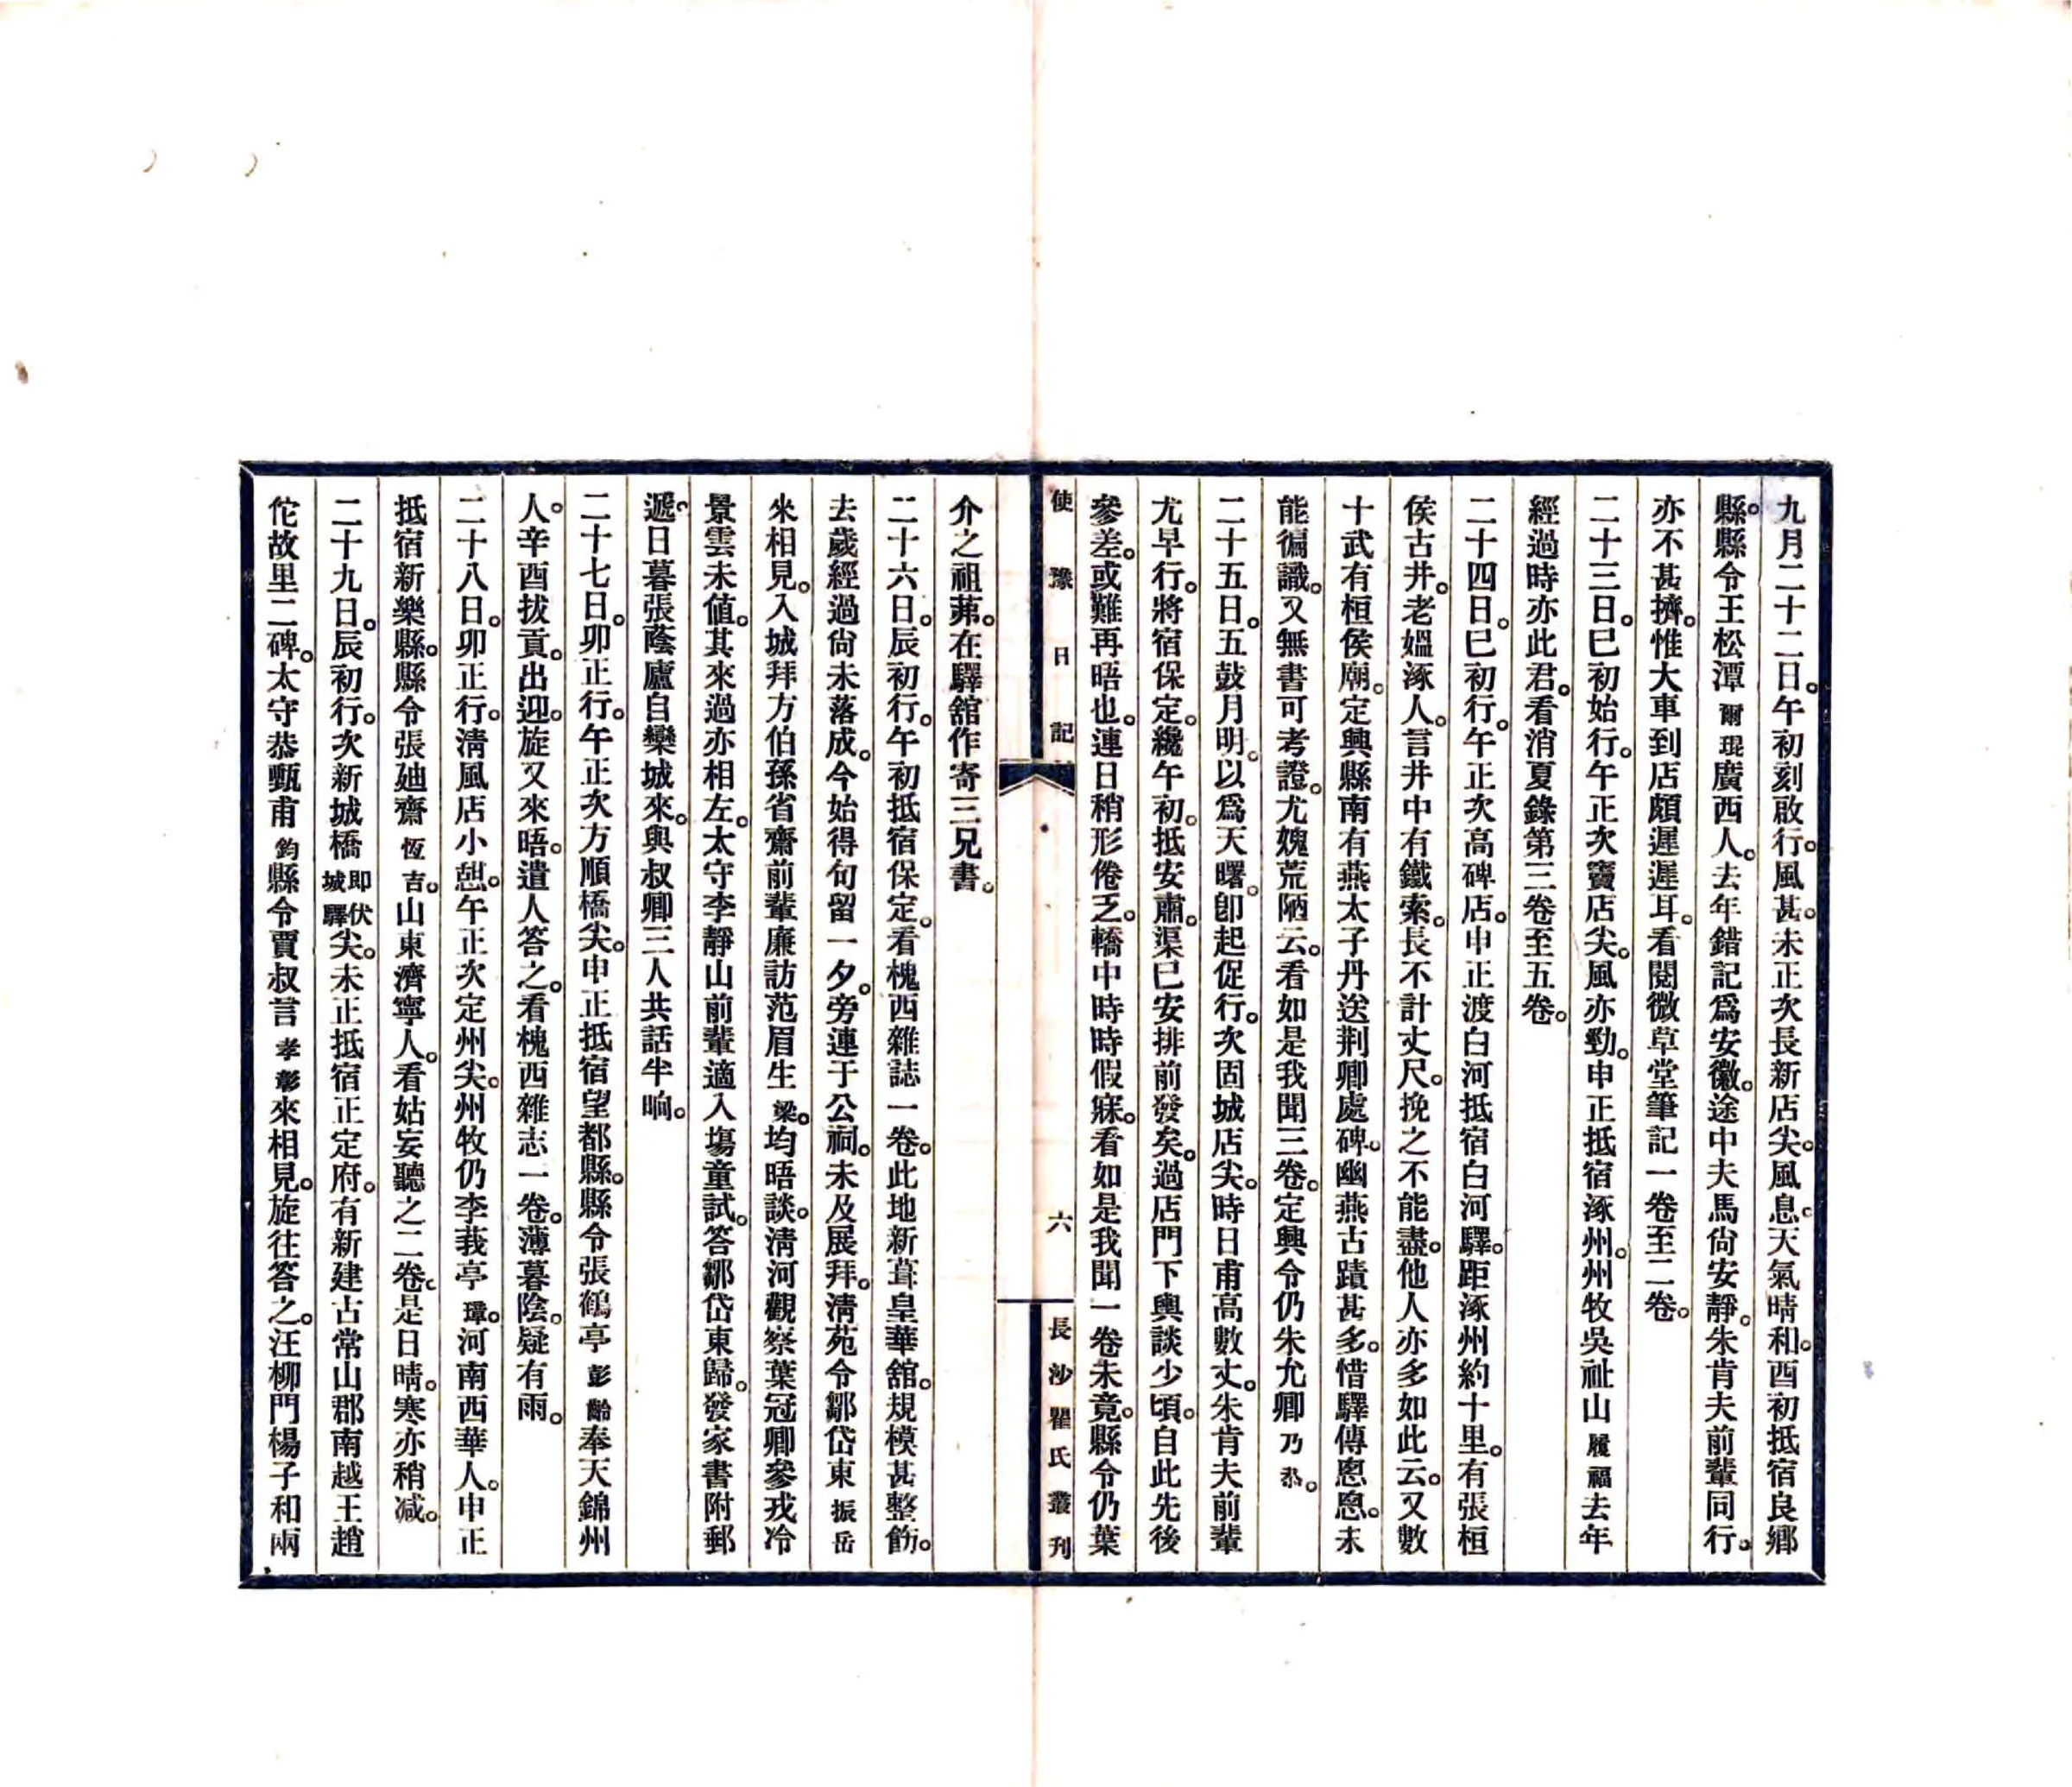 九月二十二日。午初刻啟行。風甚。未正次長新店尖。風息。天氣晴和。酉初抵宿良鄉
縣。縣令王松潭爾琨廣西人。去年錯記爲安徽。途中夫馬尙安靜。朱肯夫前輩同行。
亦不甚擠。惟大車到店頗遲遲耳。看閱微草堂筆記一卷至二卷。
二十三日。巳初始行。午正次竇店尖。風亦勁。申正抵宿涿州。州牧吳祉山履福去年
經過時亦此君。看消夏錄第三卷至五卷。
二十四日。巳初行。午正次高碑店。申正渡白河抵宿白河驛。距涿州約十里。有張桓
侯古井。老媼涿人。言井中有鐵索。長不計丈尺。挽之不能盡。他人亦多如此云。又數
十武有桓侯廟。定興縣南有燕太子丹送荆卿處碑。幽燕古蹟甚多。惜驛傳悤悤。未
能徧識。又無書可考證。尤媿荒陋云。看如是我聞三卷。定興令仍朱允卿乃恭。
二十五日。五鼓月明。以爲天曙。卽起促行。次固城店尖。時日甫高數丈。朱肯夫前輩
尤早行。將宿保定。纔午初。抵安肅。渠已安排前發矣。過店門下輿談少頃。自此先後
參差。或難再晤也。連日稍形倦乏。轎中時時假寐。看如是我聞一卷未竟。縣令仍葉
使豫日記
六
長沙瞿氏叢刊
介之祖茀。在驛舘作寄三兄書。
二十六日。辰初行。午初抵宿保定。看槐西雜誌一卷。此地新葺皇華舘。規模甚整飭。
去歲經過尙未落成。今始得句留一夕。旁連于公祠。未及展拜。淸苑令鄒岱東振岳
來相見。入城拜方伯孫省齋前輩廉訪范眉生梁。均晤談。淸河觀察葉冠卿參戎冷
景雲未値。其來過亦相左。太守李靜山前輩適入塲童試。答鄒岱東歸。發家書附郵
遞。日暮張蔭廬自欒城來。與叔卿三人共話半晌。
二十七日。卯正行。午正次方順橋尖。申正抵宿望都縣。縣令張鶴亭彭齡奉天錦州
人。辛酉拔貢。出迎。旋又來晤。遣人答之。看槐西雜志一卷。薄暮陰。疑有雨。
二十八日。卯正行。淸風店小憩。午正次定州尖。州牧仍李莪亭璋。河南西華人。申正
抵宿新樂縣。縣令張廸齋恆吉。山東濟寧人。看姑妄聽之二卷。是日晴。寒亦稍減。
二十九日。辰初行。次新城橋卽伏城驛尖。未正抵宿正定府。有新建古常山郡南越王趙
佗故里二碑。太守恭甄甫鈞縣令賈叔言孝彰來相見。旋往答之。汪柳門楊子和兩